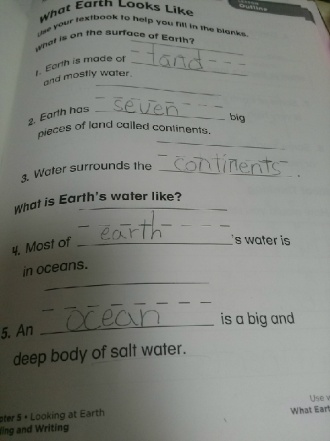 What Earth Looks Like
Outline
Use your textbook to help you fill in the blanks.
What is on the surface of Earth?
1. Earth is made of land
and mostly water.
2. Earth has seven big
pieces of land called continents.
3. Water surrounds the continents.
What is Earth's water like?
4. Most of earth's water is
in oceans.
5. An ocean is a big and
deep body of salt water.
ter 5 • Looking at Earth
ing and Writing
Use
What Eart